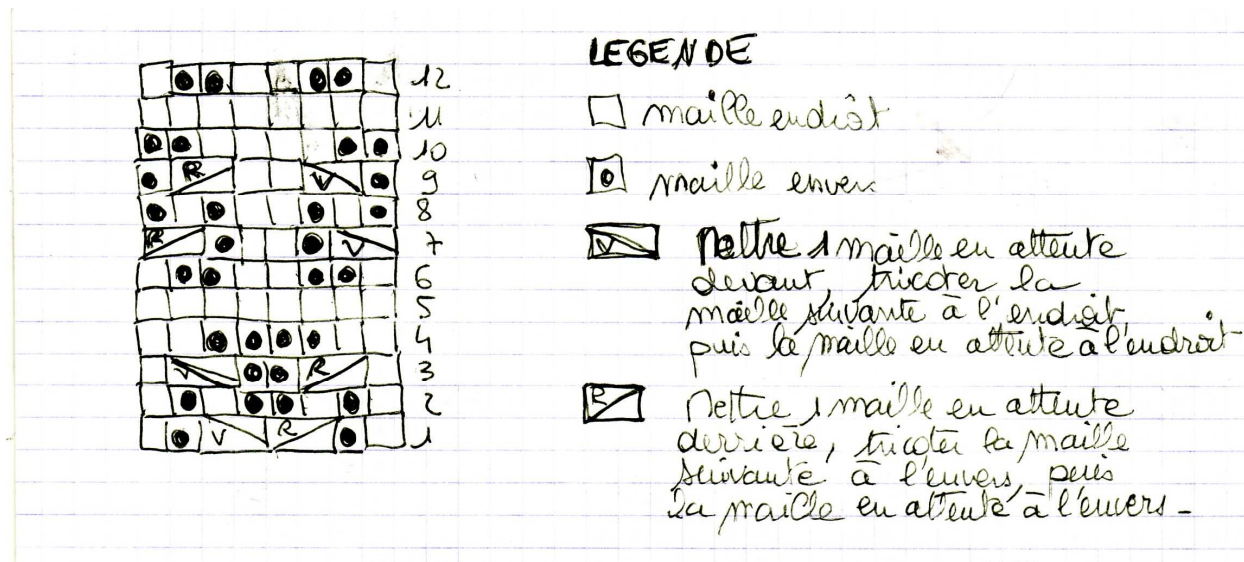 LEGENDE
12
11
10
R V 9
8
R V 7
6
5
4
V R 3
2
V R 1
maille endrôt
maille envers
V Mettre 1 maille en attente
devant, tricoter la
maille suivante à l'endroit,
puis la maille en attente à l'endroit
R Mettre 1 maille en attente
derrière, tricoter la maille
suivante à l'envers, puis
la maille en attente à l'envers -